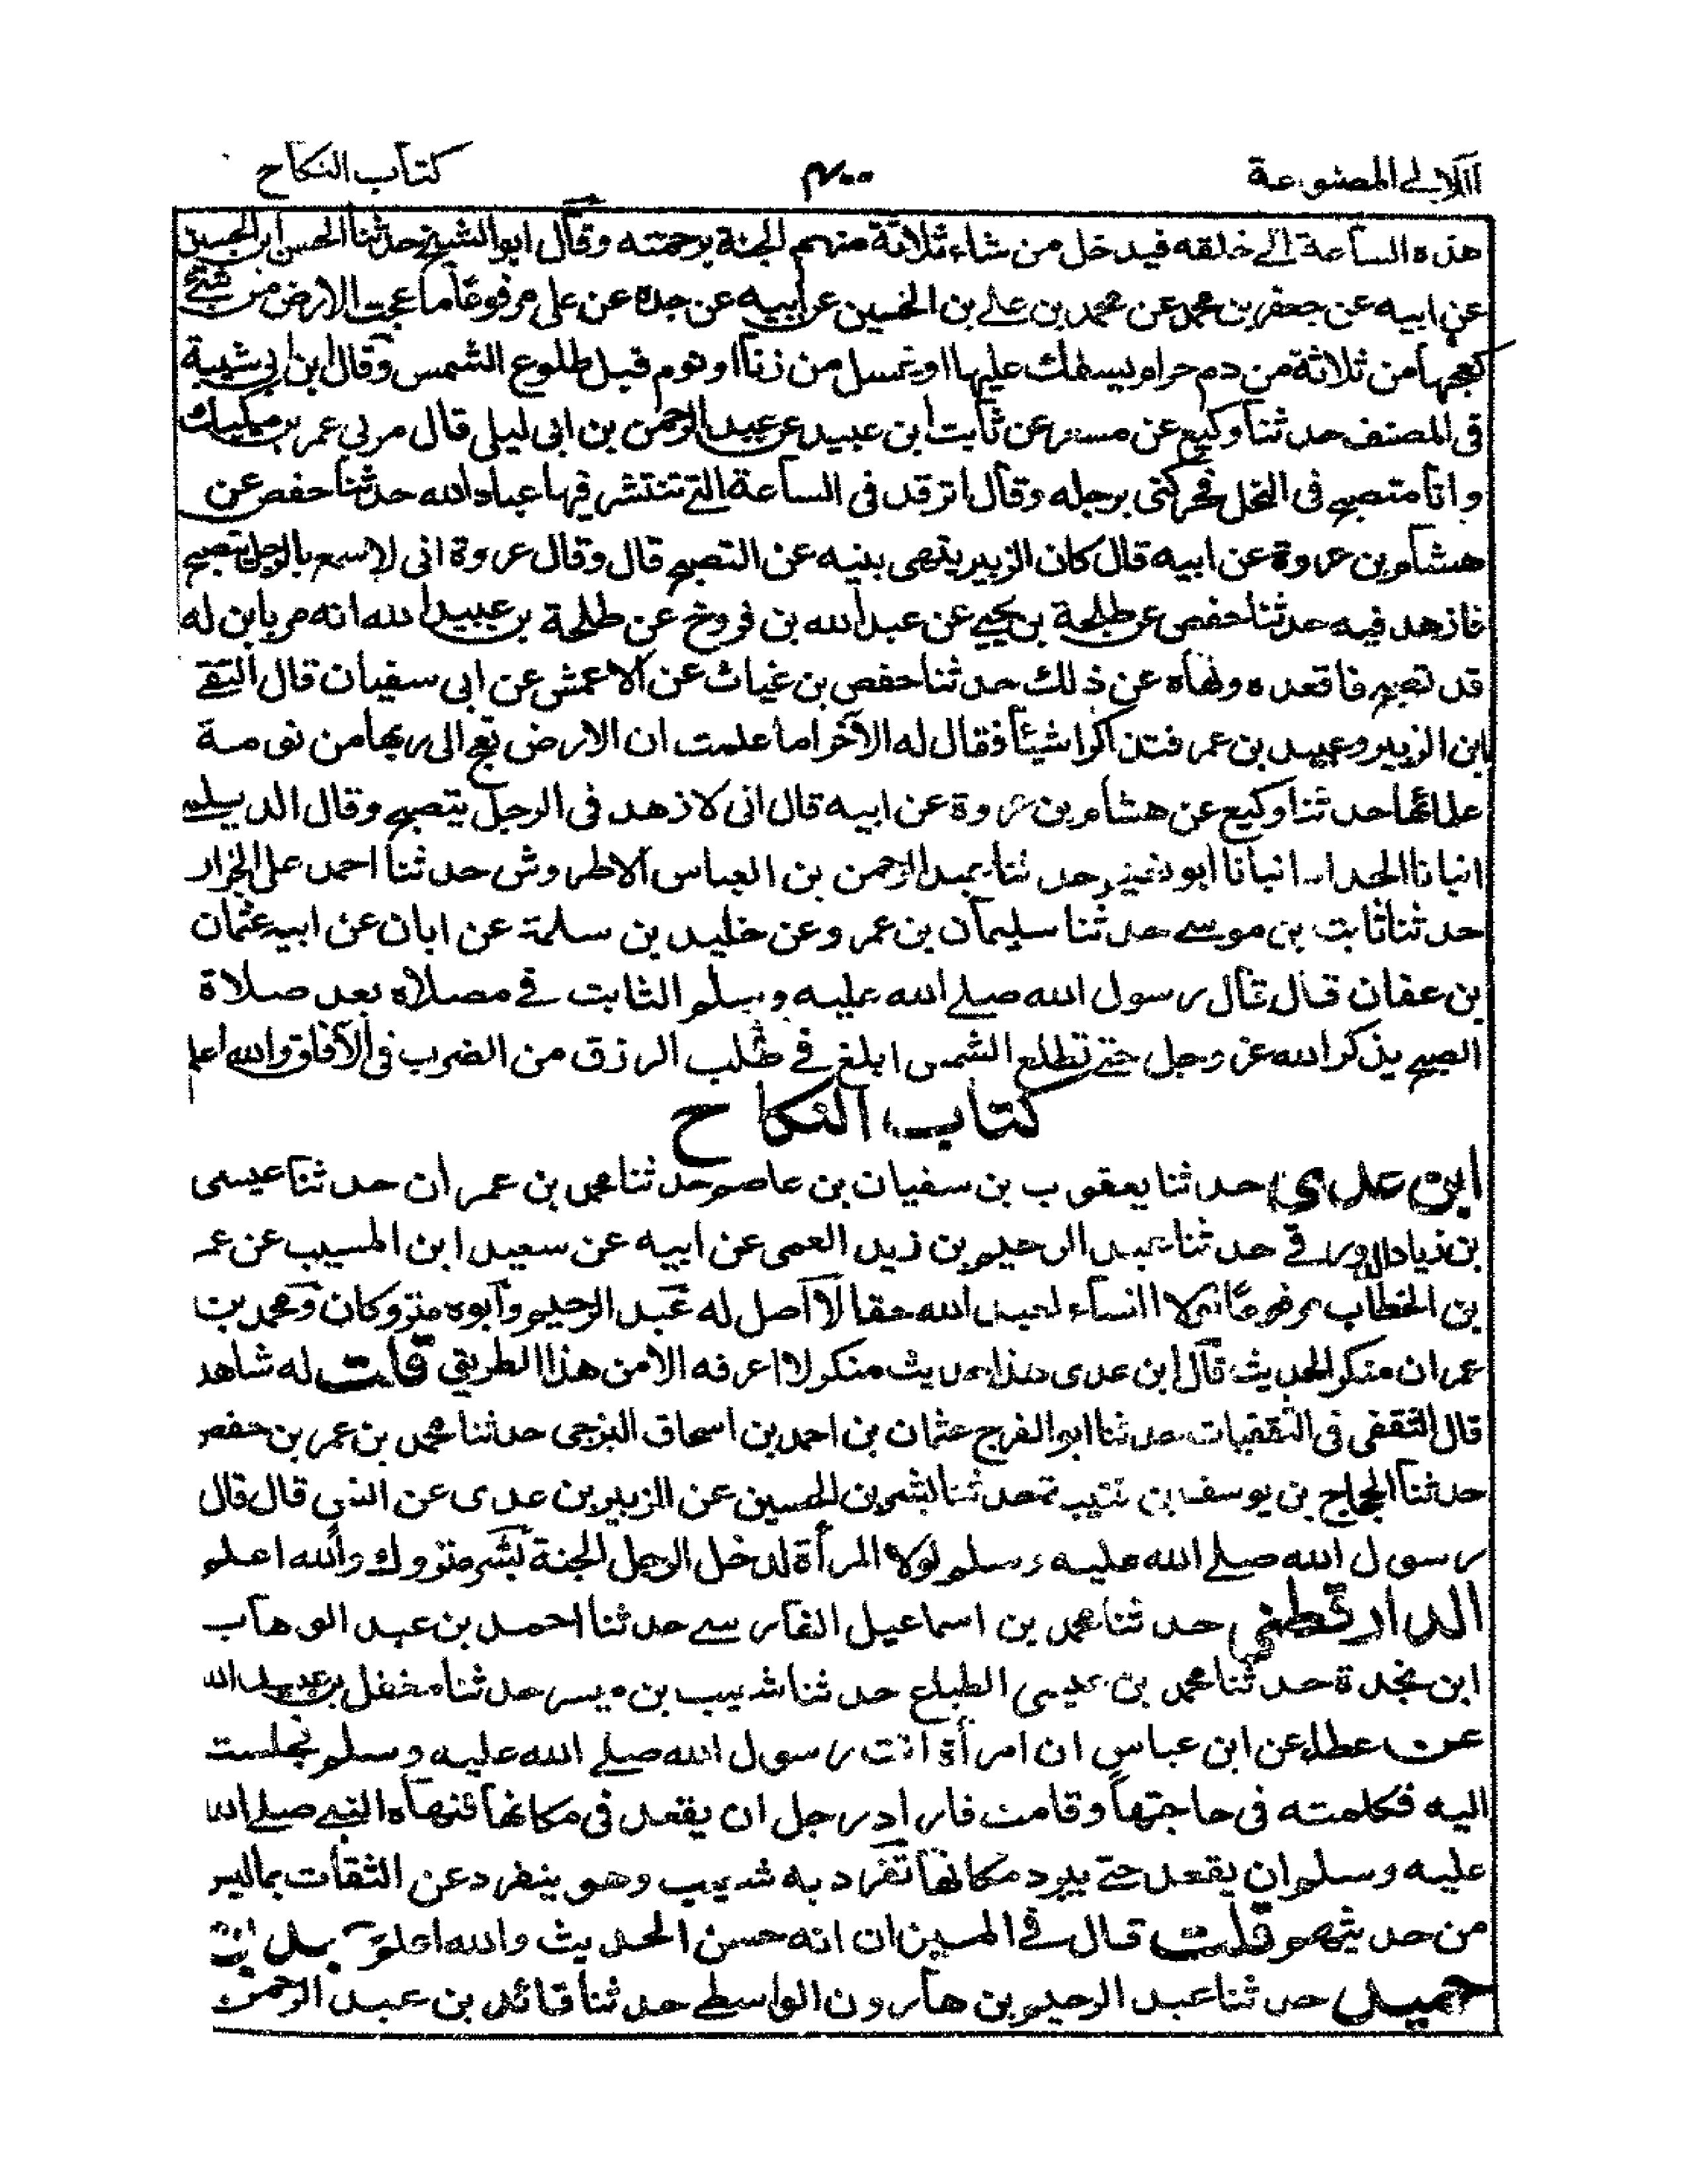 اللآلي المصنوعة ٤٠٠ كتاب النكاح
هذه الساعة الى خلقه فيدخل من شاء ثلاثة منهم الجنة برحمته وقال ابو الشيخ حدثنا الحسن ابن الحسين
عن ابيه عن جعفر بن محمد عن محمد بن على بن الحسين عن ابيه عن جده عن على مرفوعا ما عجت الارض من شئ
كعجها من ثلاثة من دم حرام يسفك عليها او غسل من زنا او نوم قبل طلوع الشمس وقال ابن ابى شيبة
فى المصنف حدثنا وكيع عن مسعر عن ثابت ابن عبيد عن عبد الرحمن بن ابى ليلى قال مر بي عمر بن
وانا متصبح فى النخل فحركنى برجله وقال اترقد فى الساعة التى تنتشر فيها عباد الله حدثنا حفص عن
هشام بن عروة عن ابيه قال كان الزبير ينهى بنيه عن التصبح قال وقال عروة انى لاسمع بالرجل يتصبح
فازهد فيه حدثنا حفص عن طلحة بن يحيى عن عبد الله بن فروخ عن طلحة بن عبيد الله انه مر بابن له
قد تصبح فاقعده ونهاه عن ذلك حدثنا حفص بن غياث عن الاعمش عن ابى سفيان قال التقى
ابن الزبير وعبيد بن عمر فتذاكرا شيئا فقال له الآخر اما علمت ان الارض تعج الى ربها من نومة
علمائها حدثنا وكيع عن هشام بن عروة عن ابيه قال انى لازهد فى الرجل يتصبح وقال الديلمى
انبانا الحداد انبانا ابو نعيم حدثنا عبد الرحمن بن العباس الاطروش حدثنا احمد على الخزار
حدثنا ثابت بن موسى حدثنا سليمان بن عمرو عن خليد بن سلمة عن ابان عن ابيه عثمان
بن عفان قال قال رسول الله صلى الله عليه وسلم الثابت فى مصلاه بعد صلاة
الصبح يذكر الله عز وجل حتى تطلع الشمس ابلغ فى طلب الرزق من الضرب فى الآفاق والله اعلم
كتاب النكاح
ابن عدى حدثنا يعقوب بن سفيان بن عاصم حدثنا محمد بن عمران حدثنا عيسى
بن زياد الدورقى حدثنا عبد الرحيم بن زيد العمى عن ابيه عن سعيد ابن المسيب عن عمر
بن الخطاب مرفوعا لولا النساء لعبد الله حقا لا اصل له عبد الرحيم وابوه متروكان ومحمد بن
عمران منكر الحديث قال ابن عدى هذا حديث منكر لا اعرفه الا من هذا الطريق قلت له شاهد
قال الثقفى فى الثقفيات حدثنا ابو الفرج عثمان بن احمد بن اسحاق البرجى حدثنا محمد بن عمر بن حفص
حدثنا الحجاج بن يوسف بن قتيبة حدثنا بشر بن الحسين عن الزبير بن عدى عن النبي قال قال
رسول الله صلى الله عليه وسلم لولا المرأة لدخل الرجل الجنة بشر متروك والله اعلم
الدار قطنى حدثنا محمد بن اسماعيل الفارسى حدثنا احمد بن عبد الوهاب
ابن نجدة حدثنا محمد بن عيسى الطباع حدثنا شعيب بن مبشر حدثنا معقل بن عبيد الله
عن عطاء عن ابن عباس ان امرأة اتت رسول الله صلى الله عليه وسلم فجلست
اليه فكلمته فى حاجتها وقامت فاراد رجل ان يقعد فى مكانها فنهاه النبى صلى الله
عليه وسلم ان يقعد حتى يبرد مكانها تفرد به شعيب وهو ينفرد عن الثقات بما ليس
من حديثهم قلت قال فى الميزان انه حسن الحديث والله اعلم
حميد حدثنا عبد الرحيم بن هارون الواسطى حدثنا قائد بن عبد الرحمن